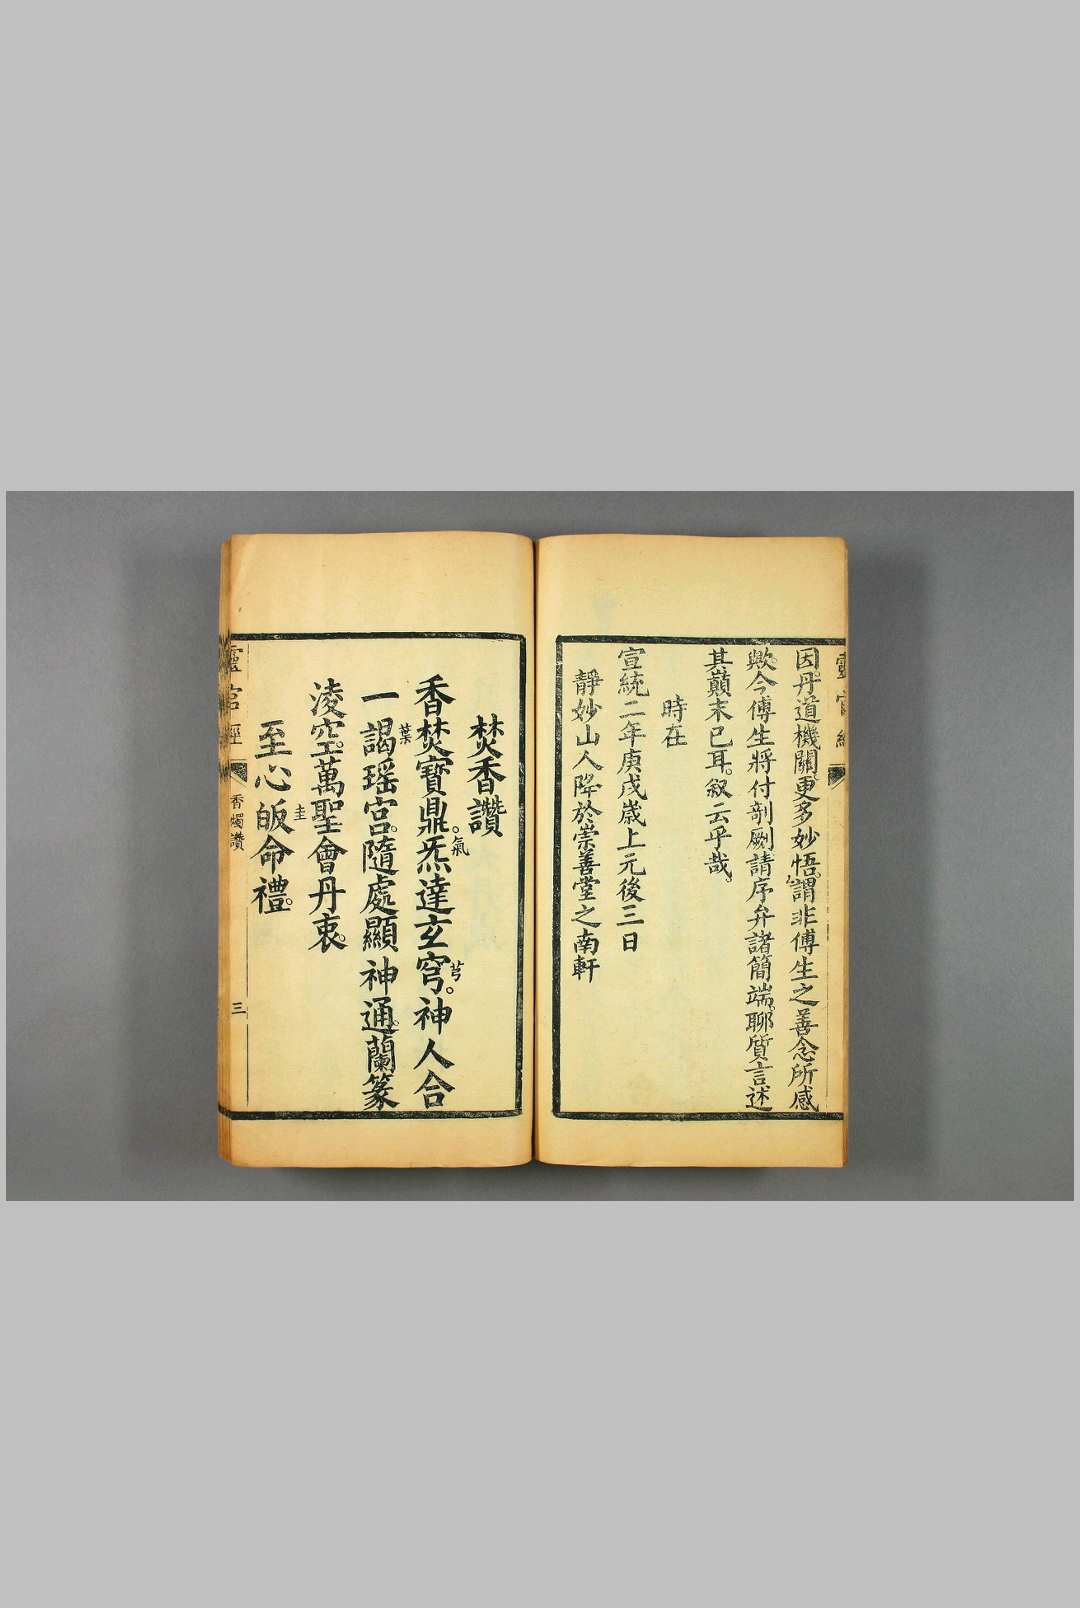 因丹道機關更多妙悟。謂非傅生之善念所感
歟。今傅生將付剞劂請序弁諸簡端。聊質言述
其巔末已耳。叙云乎哉。
時在
宣統二年庚戌嵗上元後三日
靜妙山人降於崇善堂之南軒
焚香讚
香焚寶鼎。炁達玄穹。神人合
氣
芎
一謁瑶宮。隨處顯神通。蘭篆
葉
淩空。萬聖會丹衷。
圭
至心皈命禮。
靈官經
香燭讚
三